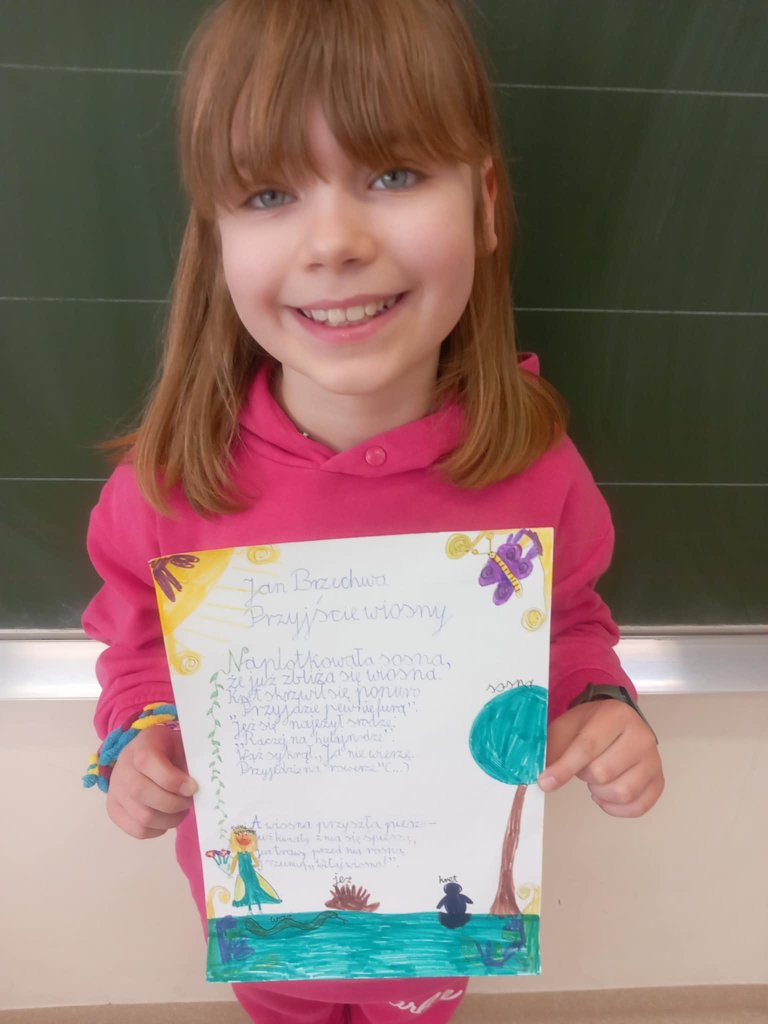 Jan Brzechwa
Przyjście wiosny
Naplotkowała sosna,
że już zbliża się wiosna.
Kret skrzywił się ponuro
"Przyjdzie pewnie furą".
"Jeż się najeżył srodze
"Raczej na hulajnodze".
Wąż syknął "Ja nie wierzę.
Przyjedzie na rowerze" (...)
A wiosna przyszła pieszo –
Już kwiaty z nią się spieszą,
Już trawy przed nią rosną
szumią "Witaj wiosno!".
sosna
jeż
kret
wąż